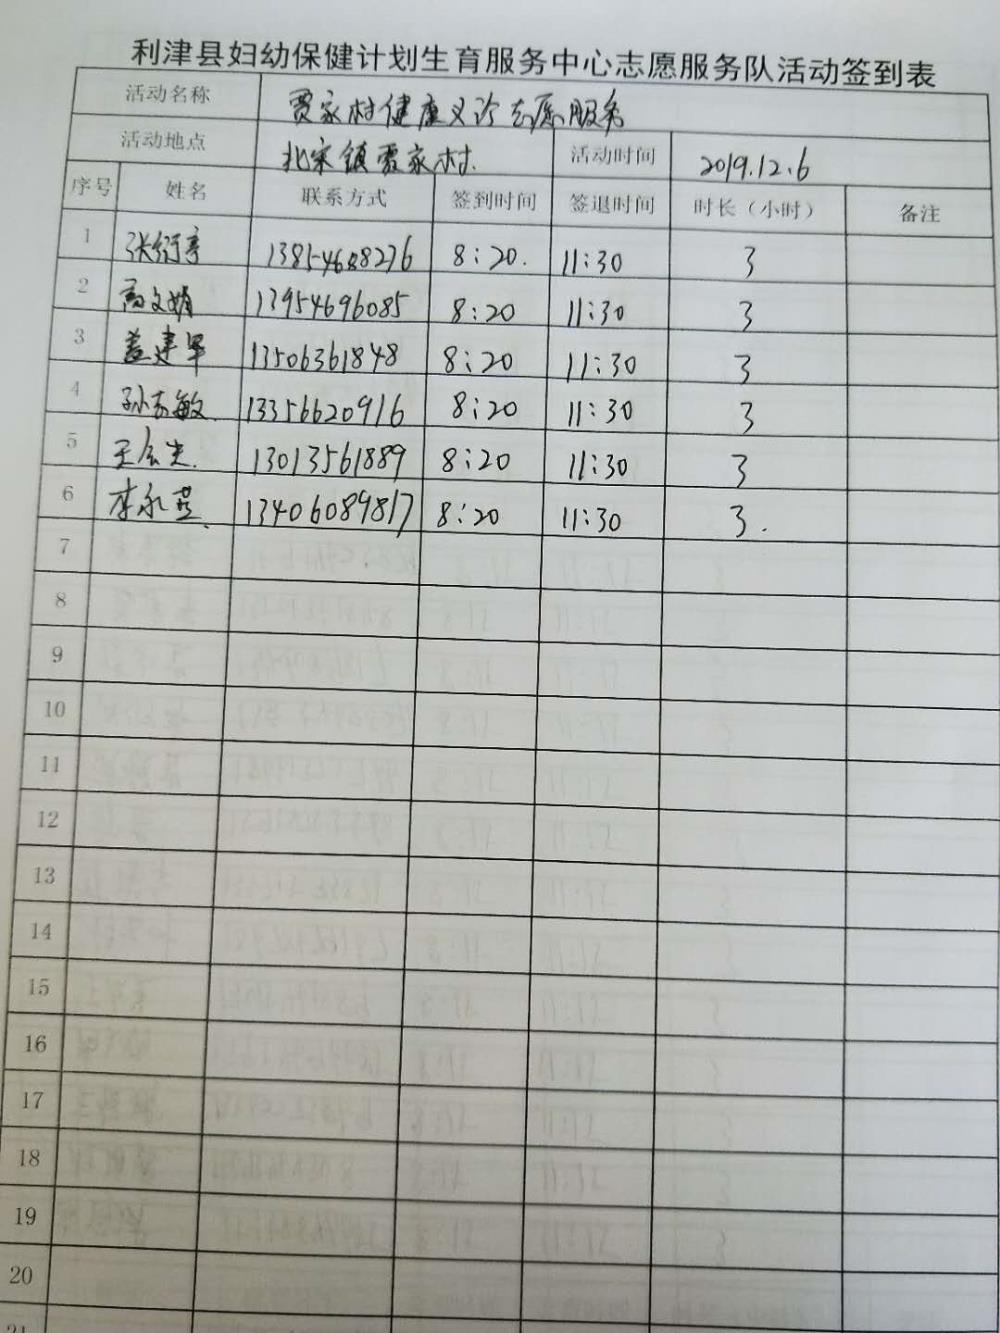 利津县妇幼保健计划生育服务中心志愿服务队活动签到表
活动名称 贾家村健康义诊志愿服务
活动地点 北宋镇贾家村. 活动时间 2019.12.6
序号 姓名 联系方式 签到时间 签退时间 时长（小时） 备注
1 张 13854688276 8:20. 11:30 3
2 高文娟 13954696085 8:20 11:30 3
3 盖建军 13506361848 8:20 11:30 3
4 孙敏. 13356620916 8:20 11:30 3
5 王 13013561889 8:20 11:30 3
6 李永燕. 13406089817 8:20 11:30 3.
7
8
9
10
11
12
13
14
15
16
17
18
19
20
21